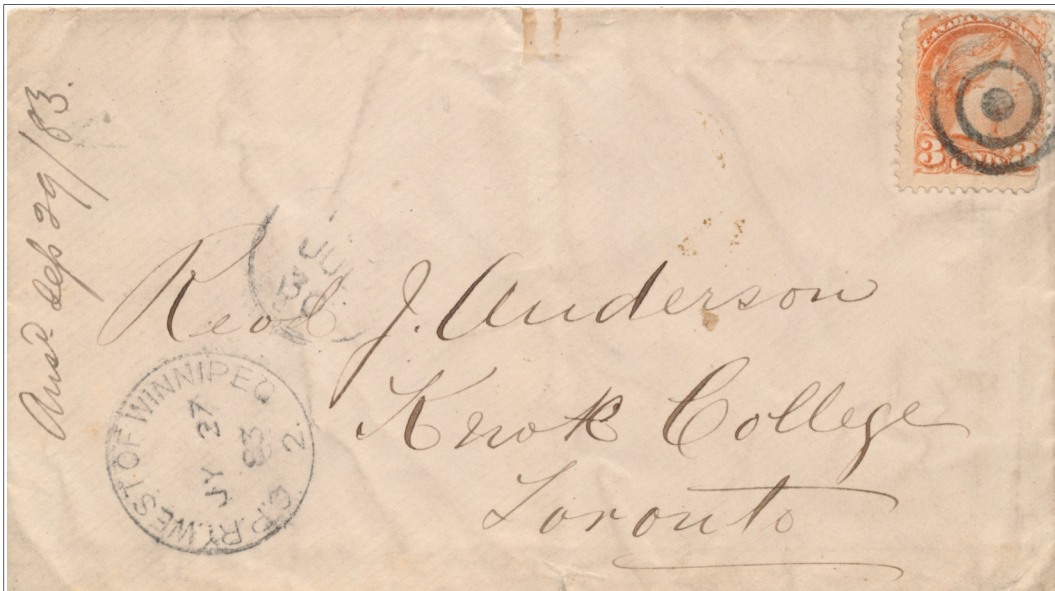 CANADA POSTAGE
3 CENTS 3
Ansd. Sep 29/83.
JU
30
Revd J. Anderson
Knox College
Toronto
C.P.RY. WEST OF WINNIPEG
JY 27
83
2.